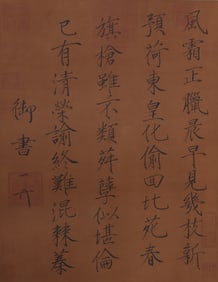 風霜正臘晨早見幾枝新
預荷東皇化偷回比苑春
旗槍雖不類荈孽似堪倫
已有清榮諭終難混棘蓁
御書